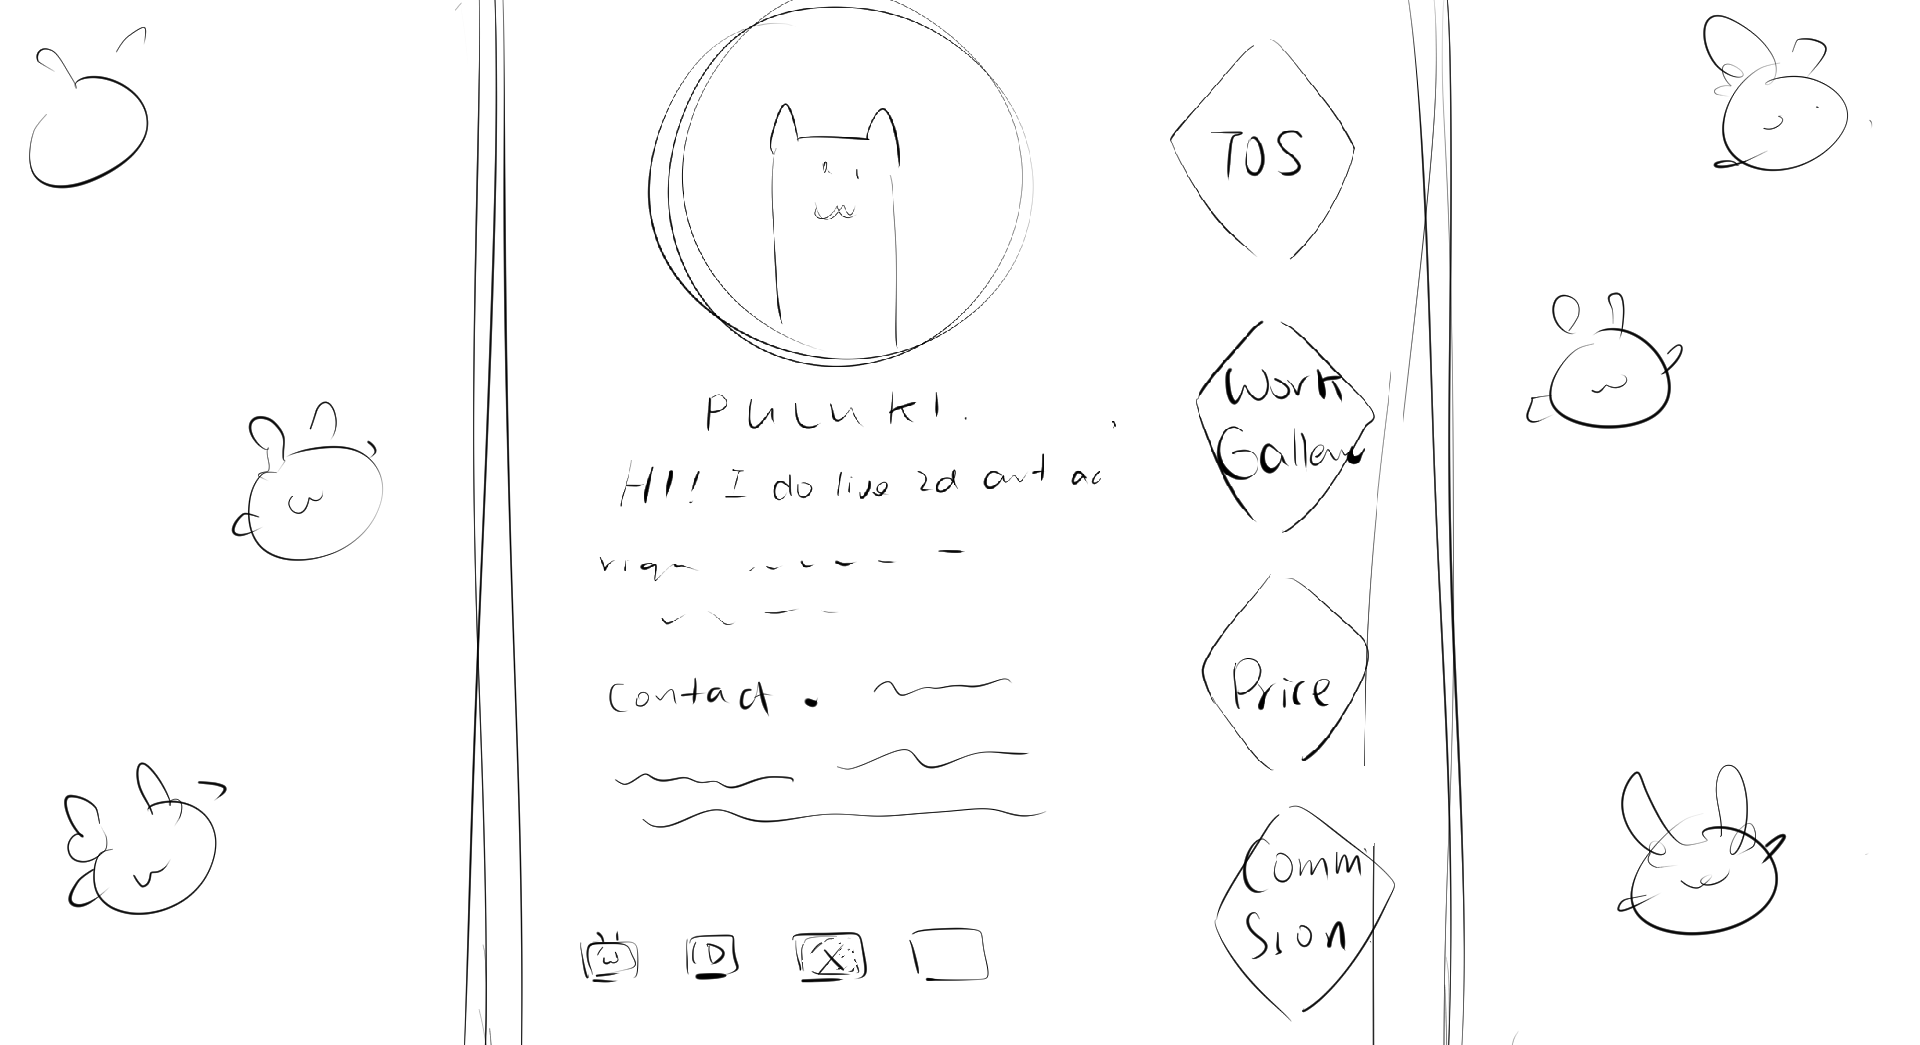 PULUKI.
HI!! I do live 2d art ac
Contact.
D
X
TOS
Work
Gallery
Price
Comm
Sion